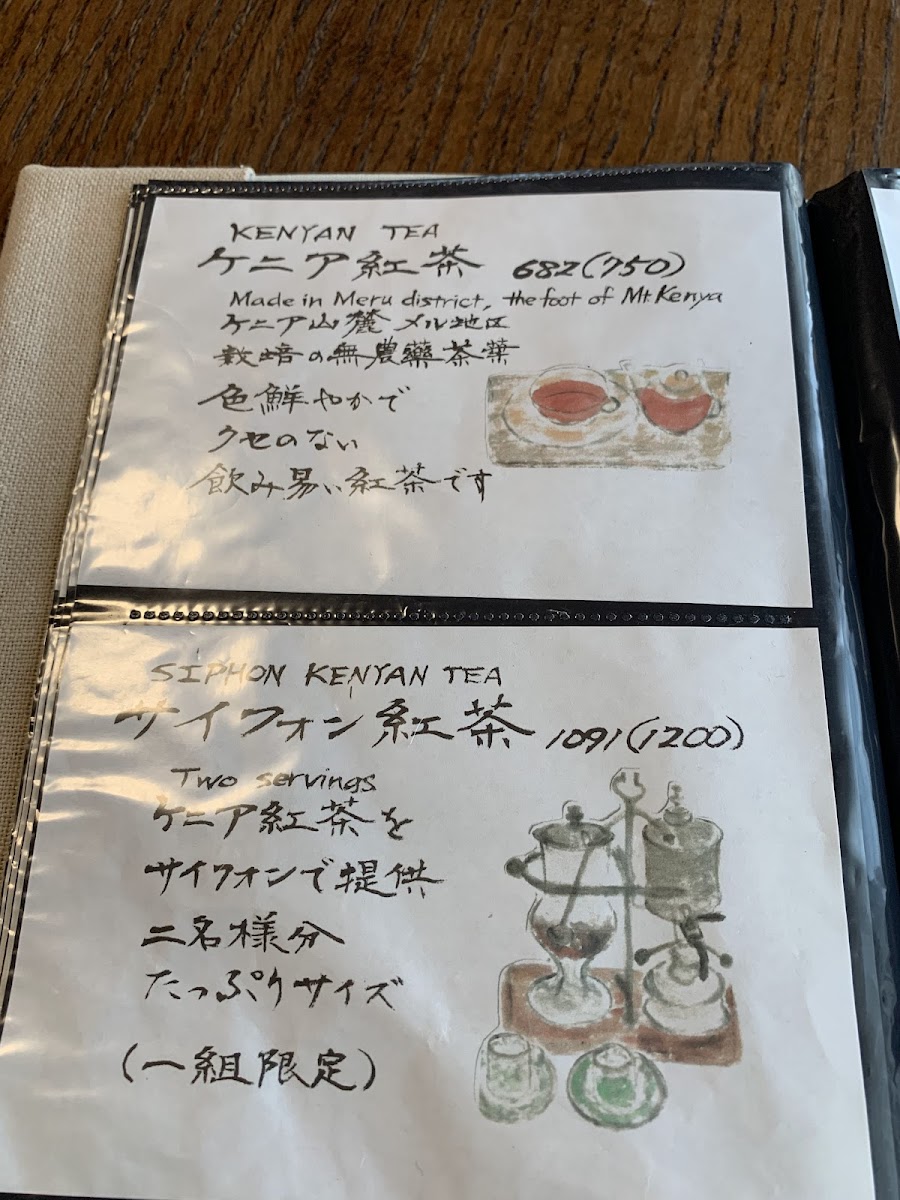 KENYAN TEA
ケニア紅茶 682(750)
Made in Meru district, the foot of Mt Kenya
ケニア山麓 メル地区
栽培の無農藥茶葉
色鮮やかで
クセのない
飲み易い紅茶です
SIPHON KENYAN TEA
サイフォン紅茶 1091(1200)
Two servings
ケニア紅茶を
サイフォンで提供
二名様分
たっぷりサイズ
(一組限定)